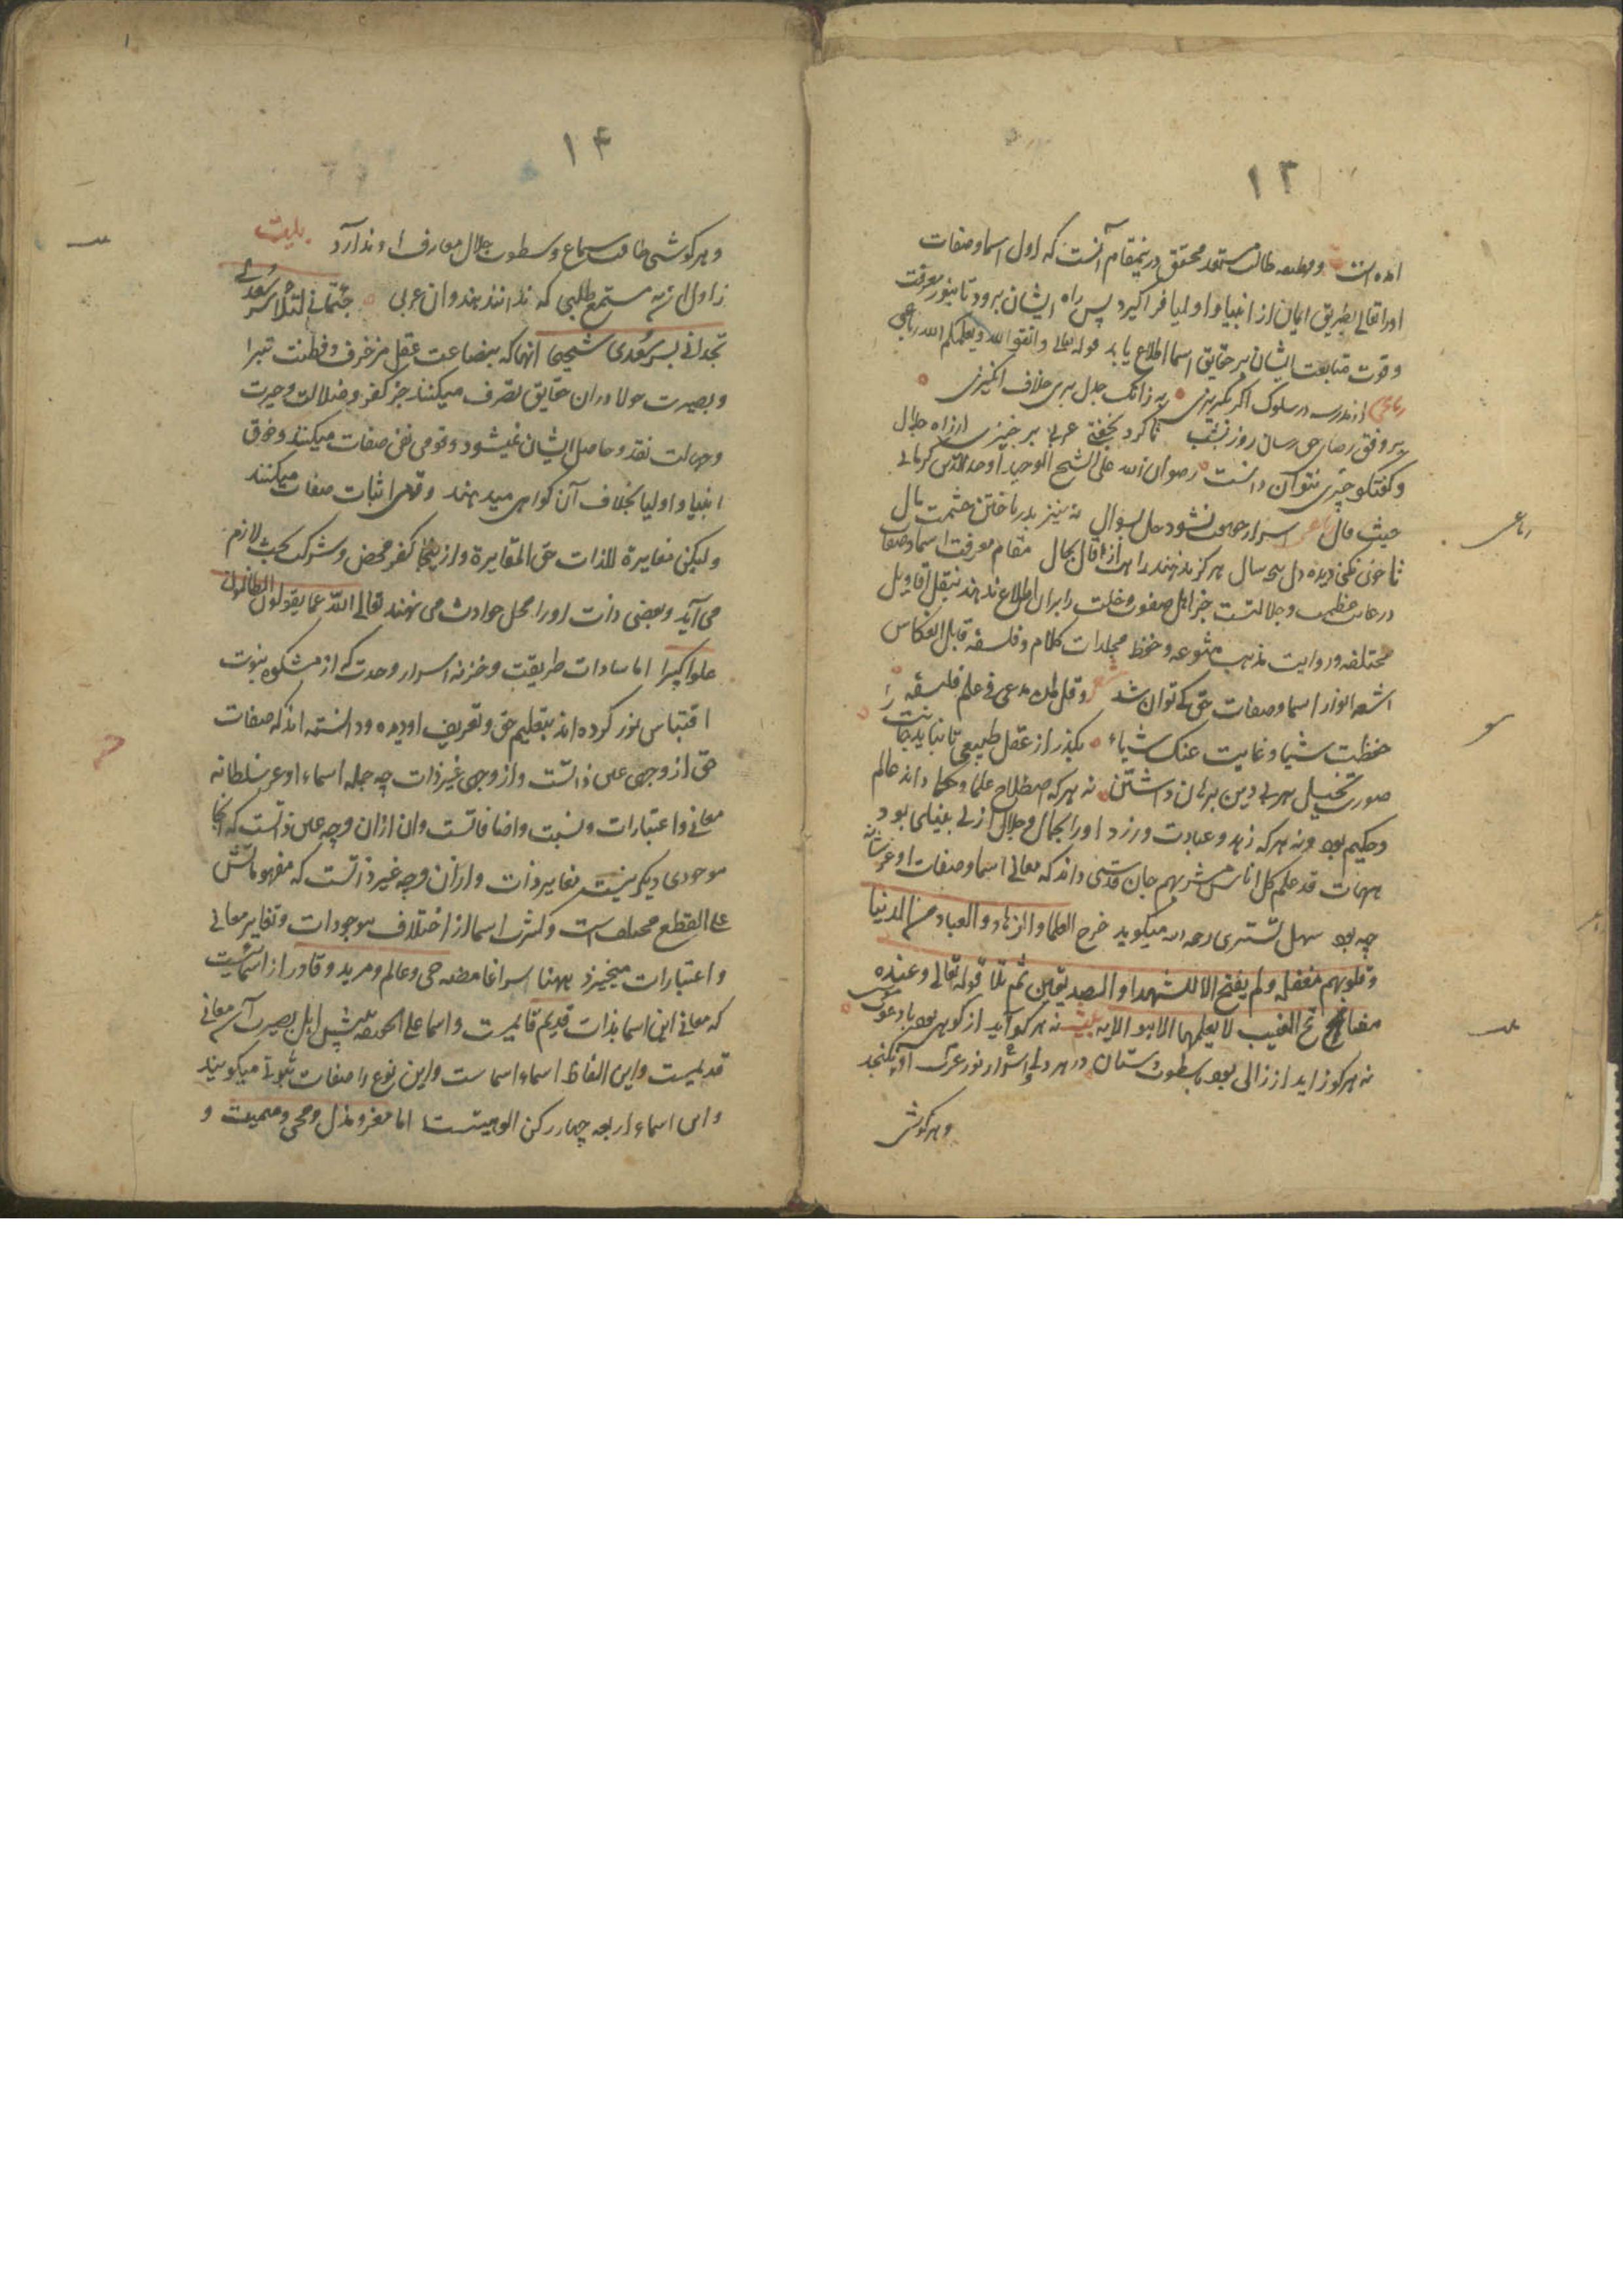 ۱۳
امده است و وظیفه طالب مستعد محقق درینمقام آنست که اول اسما و صفات
اورا تعالی بطریق ایمان از انبیا و اولیا فراکیرد پس براه ایشان برود تا بنور معرفت
و قوت متابعت ایشان بر حقایق اسما اطلاع یابد قوله تعالی واتقوا الله ویعلمکم الله رباعی
رباعی از مدرسه در سلوک اکر بکریزی به زانک جدل بری خلاف انکیزی
بر وفق رضای حق رسان روز بشب تا کرد بخفتی عربی برخیزی از راه جلال
و کفتکو چیزی نتوان دانست رضوان الله علی الشیخ اوحدالدین کرمانی
حیث قال رباعی اسرار حقیقت نشود حل بسوال نه نیز بدرباختن حشمت و مال
تا خون نکنی دیده و دل پنجه سال هرکز ندهند راهت از قال بحال مقام معرفت اسما و صفات
در غایت عظمت و جلالتست جز اهل صفوت و خلت را بران اطلاع ندهند بنقل اقاویل
مختلفه و روایت مذهب متنوعه و حفظ مجلدات کلام و فلسفه قابل انعکاس
اشعه انوار اسما و صفات حق کی توان شد شعر وقل لمن یدعی فی علم فلسفة
حفظت شیئا وغابت عنک اشیاء بکذر از عقل طبیعی تا نیاید جانت را
صورت تخیل هر بی دین برهان داشتن نه هرکه اصطلاح علما و حکما داند عالم
و حکیم بود و نه هرکه زهد و عبادت ورزد اورا بجمال و جلال ازلی بینایی بود
هیهات قد علم کل اناس مشربهم جان قدسی داند که معانی اسما و صفات او عز شانه
چه بود سهل تستری رحمه الله میکوید خرج العلما والزهاد والعباد من الدنیا
وقلوبهم مقفلة ولم یفتح الا للشهدا والصدیقین ثم تلا قوله تعالی وعنده
مفاتح الغیب لا یعلمها الا هو الایه بیت نه هرکو آید از کوهی بود با دعوت موسی
نه هرکو زاید از زالی بود با سطوت دستان در هر دلی اسرار نور عزت او نکنجد
و هرکوشی
۱۴
و هرکوشی طاقت سماع و سطوت جلال معارف او ندارد بیت
زاول از به مستمع طلبی که ندانند هندوان عربی جثمانی لتلا سر سعدی
تجدانی بسر سعدی شحیحا انها که ببضاعت عقل مزخرف و فطنت تبرا
و بصیرت حولا دران حقایق تصرف میکنند جز کفر و ضلالت و حیرت
و جهالت نقد وحاصل ایشان نمیشود و قومی نفی صفات میکنند و ذوق
انبیا و اولیا بخلاف آن کواهی میدهند و قومی اثبات صفات میکنند
ولیکن مغایرة للذات حق المغایرة و از ینجا کفر محض و شرک بحت لازم
می آید و بعضی ذات اورا محل حوادث می نهند تعالی الله عما یقولون الظالمون
علوا کبیرا اما سادات طریقت و خزنه اسرار وحدت که از مشکوه نبوت
اقتباس نور کرده اند بتعلیم حق و تعریف او دیده و دانسته اند که صفات
حق از وجهی عین ذاتست و از وجهی غیر ذات چه جمله اسماء او عز سلطانه
معانی و اعتبارات و نسبت و اضافاتست و ان ازان وجه عین ذاتست که انجا
موجودی دیکر نیست مغایر ذات و ازان وجه غیر ذاتست که مفهوماتش
علی القطع مختلف است و کثرت اسما از اختلاف موجودات و تغایر معانی
و اعتبارات میخیزد بهنا اسرار غامضه حی و عالم و مرید و قادر از اسمائیست
که معانی این اسما بذات قدیم قایمست و اسما علی الحقیقه پیش اهل بصیرت آن معانی
قدیمست و این الفاظ اسماء اسماست و این نوع را صفات ثبوتی میکویند
و این اسماء اربعه چهار رکن الوهیتست اما معز و مذل و محی و ممیت و